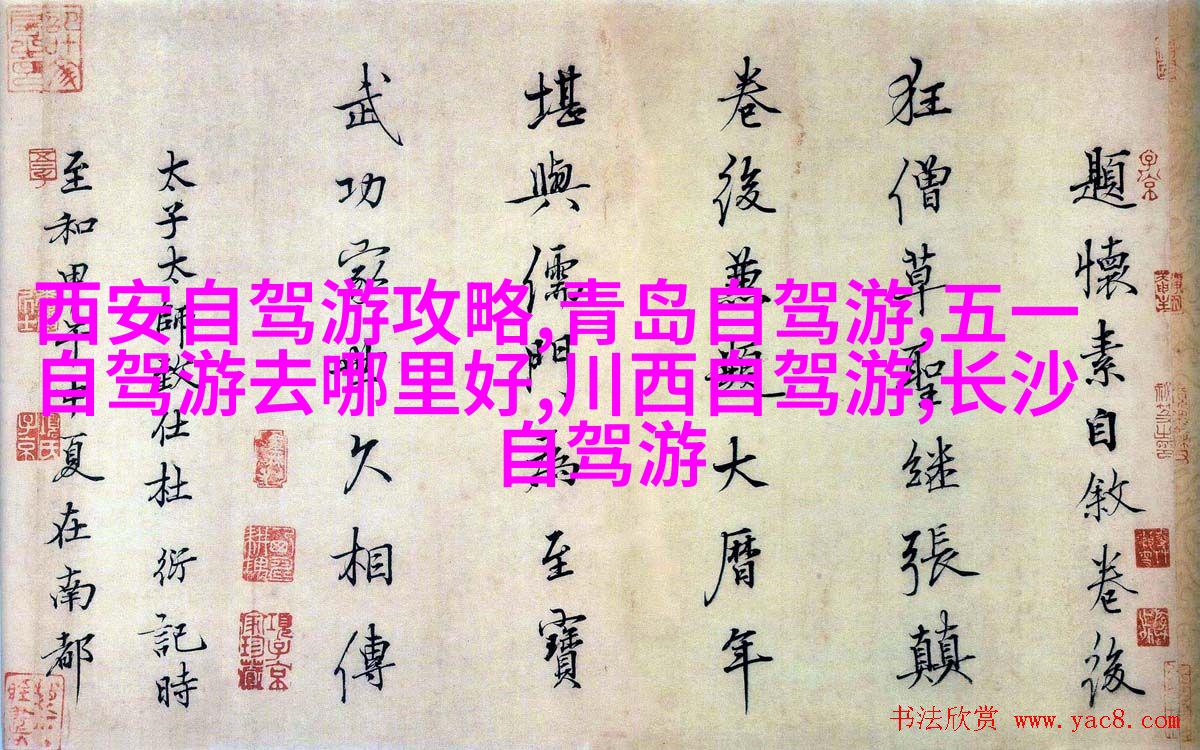 西安自驾游攻略,青岛自驾游,五一
自驾游去哪里好,川西自驾游,长沙
自驾游
題懷素自敘卷後
狂僧草聖继張顛
卷後兼題大曆年
堪與儒門為至寶
武功家久相傳
太子太師致仕杜衍記時
至和甲午中夏在南都
书法欣赏 www.yac8.com